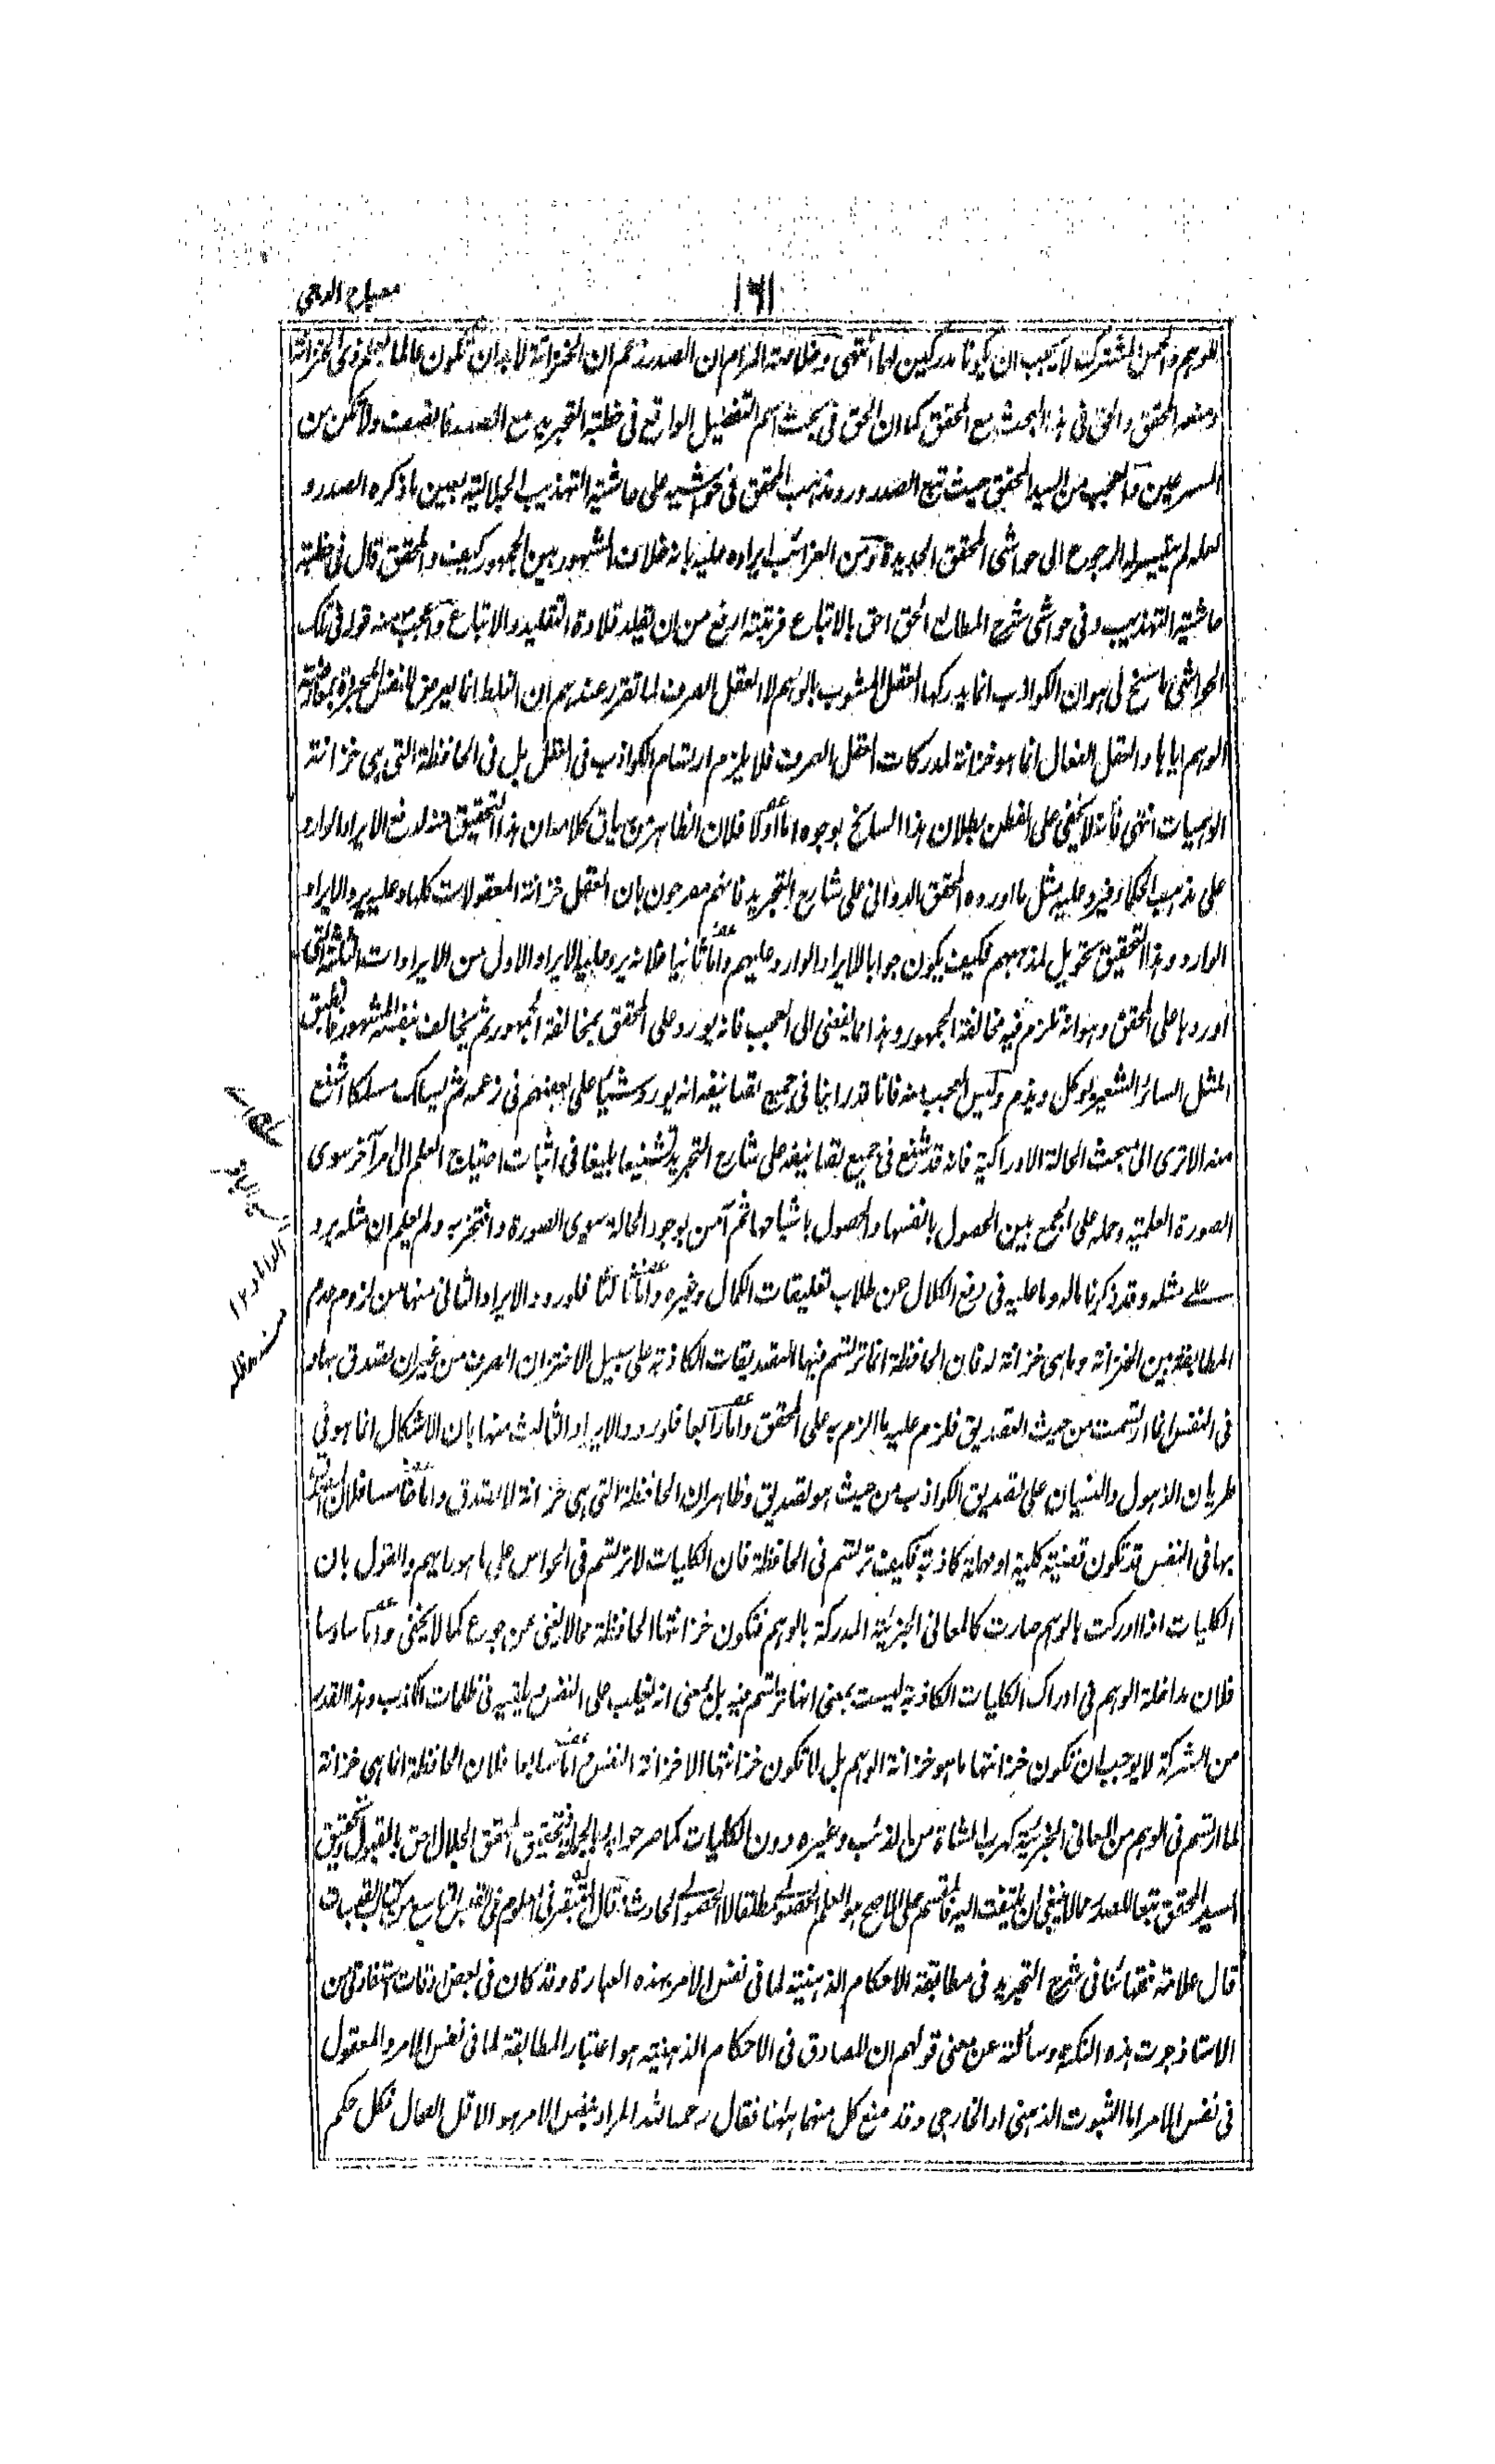 ١٦١
مصباح الدجى
الوهم والحس المشترك لا يجب ان يكونا مدركين لها انتهى وخلاصة المرام ان الصدر زعم ان الخزانة لابد ان تكون عالما بعلم ذى الخزانة
ومنعه المحقق والحق فى هذا البحث مع المحقق كما ان الحق فى بحث اسم التفضيل الواقع فى خطبة التجريد مع الصدر فانصف ولا تكن من
المسرعين والعجب من السيد المحقق حيث تبع الصدر ورد مذهب المحقق فى حواشيه على حاشية التهذيب الجلالية بعين ما ذكره الصدر و
لعله لم يتيسر له الرجوع الى حواشى المحقق الجديدة ومن الغرائب ايراده عليه بانه خلاف المشهور بين الجمهور كيف والمحقق قال فى خطبة
حاشية التهذيب وفى حواشى شرح المطالع الحق احق بالاتباع فرتبته ارفع من ان تقلد قلادة التقليد والاتباع واعجب منه قوله فى تلك
الحواشى ما سنخ لى هو ان الكواذب انما يدركها العقل المشوب بالوهم لا العقل الصرف لما تقرر عندهم ان الغلط انما يعرض للنفس المجردة بمعارضة
الوهم اياها والعقل الفعال انما هو خزانة لمدركات العقل الصرف فلا يلزم ارتسام الكواذب فى العقل بل فى الحافظة التى هى خزانة
الوهميات انتهى فانه لا يخفى على الفطن بطلان هذا السانخ بوجوه اما اولا فلان الظاهر من سياق كلامه ان هذا التحقيق منه لدفع الايراد الوارد
على مذهب الحكماء فيرد عليه مثل ما اورده المحقق الدوانى على شارح التجريد فانهم مصرحون بان العقل خزانة المعقولات كلها وعليه يرد الايراد
الوارد وهذا التحقيق تحويل لمذهبهم فكيف يكون جوابا للايراد الوارد عليهم واما ثانيا فلانه يرد عليه الايراد الاول من الايرادات الثلثة التى
اوردها على المحقق وهو انه تلزم فيه مخالفة الجمهور وهذا مما يفضى الى العجب فانه يورد على المحقق بمخالفة الجمهور ثم يخالف بنفسه المشهور فانطبق
المثل السائر الشعير يوكل ويذم وليس العجب منه فانا قد راينا فى جميع تصانيفه انه يورد شيئا على بعضهم فى زعمه ثم يسلك مسلكا اشنع
منه الا ترى الى مبحث الحالة الادراكية فانه قد شنع فى جميع تصانيفه على شارح التجريد تشنيعا بليغا فى اثبات احتياج العلم الى امر آخر سوى
الصورة العلمية وحمله على الجمع بين الحصول بانفسها والحصول باشباحها ثم آمن بوجود الحالة سوى الصورة وافتخر به ولم يعلم ان مثله يرد
على مثله وقد ذكرنا ماله وما عليه فى دفع الكلال عن طلاب تعليقات الكمال وغيره واما ثالثا فلورود الايراد الثانى منها من لزوم عدم
المطابقة بين الخزانة وما هى خزانة له فان الحافظة انما ترتسم فيها التصديقات الكاذبة على سبيل الاختزان الصرف من غير ان يصدق بها و
فى النفس انما ارتسمت من حيث التصديق فلزم عليه ما الزم به على المحقق واما رابعا فلورود الايراد الثالث منها بان الاشكال انما هو فى
طريان الذهول والنسيان على تصديق الكواذب من حيث هو تصديق وظاهر ان الحافظة التى هى خزانة لا تصدق واما خامسا فلان
بها فى النفس قد تكون قضية كلية او مهملة كاذبة فكيف ترتسم فى الحافظة فان الكليات لا ترتسم فى الحواس على ما هو رايهم والقول بان
الكليات اذا ادركت بالوهم صارت كالمعانى الجزئية المدركة بالوهم فتكون خزانتها الحافظة مما لا يغنى من جوع كما لا يخفى واما سادسا
فلان مداخلة الوهم فى ادراك الكليات الكاذبة ليست بمعنى انها ترتسم فيه بل بمعنى انه يغلب على النفس ويلقيه فى ظلمات الكاذب وهذا القدر
من الشركة لا يوجب ان تكون خزانتها ما هو خزانة الوهم بل لا تكون خزانتها الا خزانة النفس واما سابعا فلان الحافظة انما هى خزانة
لما ارتسم فى الوهم من المعانى الجزئية كهرب الشاة من الذئب وغيره دون الكليات كما صرحوا به وبالجملة فتحقيق المحقق الجلال احق بالقبول وتحقيق
السيد المحقق تبعا للصدر مما لا ينبغى ان يلتفت اليه فالمقسم على الاصح هو العلم الحصولى مطلقا لا الحصولى الحادث قال المتبقر فى العلوم فى القبس التاسع من كتاب القبسات
قال علامة فقهائنا فى شرح التجريد فى مطابقة الاحكام الذهنية لما فى نفس الامر بهذه العبارة وقد كان فى بعض اوقات استفادتى من
الاستاذ جرت هذه النكتة وسألته عن معنى قولهم ان الصادق فى الاحكام الذهنية هو اعتبار المطابقة لما فى نفس الامر والمعقول
فى نفس الامر اما الثبوت الذهنى او الخارجى وقد منع كل منهما ههنا فقال رحمه الله المراد بنفس الامر هو العقل الفعال فكل حكم
الداماد ١٢
منه مدظله